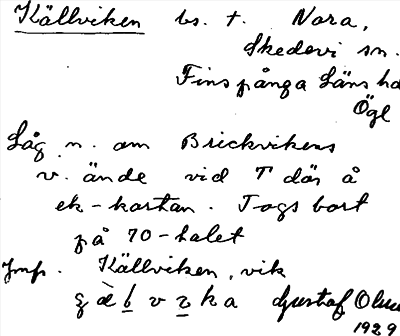 Källviken bs. t. Nora,
Skedevi sn.
Finspånga Läns hd
Ögl
Låg n. om Brickvikens
v. ände vid T där å
ek-kartan. Togs bort
på 70-talet
Jmf. Källviken, vik
v ka Gustaf
1929